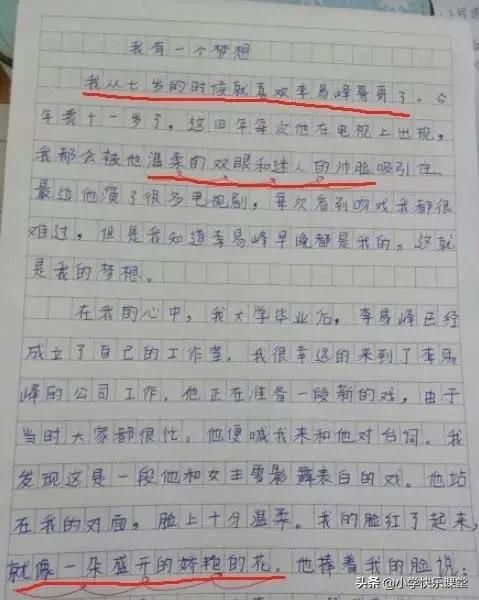 我有一个梦想
我从七岁的时候就喜欢李易峰哥哥了。今
年我十一岁了，这四年每次他在电视上出现，
我都会被他温柔的双眼和迷人的帅脸吸引住。
最近他演了很多电视剧，每次看到吻戏我都很
难过，但是我知道李易峰早晚都是我的，这就
是我的梦想。
在我的心中，我大学毕业后，李易峰已经
成立了自己的工作室，我很幸运的来到了李易
峰的公司工作，他正在准备一段新的戏，由于
当时大家都很忙，他便喊我来和他对台词，我
发现这是一段他和女主雪影舞表白的戏。他站
在我的对面，脸上十分温柔。我的脸红了起来，
就像一朵盛开的娇艳的花。他捧着我的脸说：
头条 @小学快乐课堂